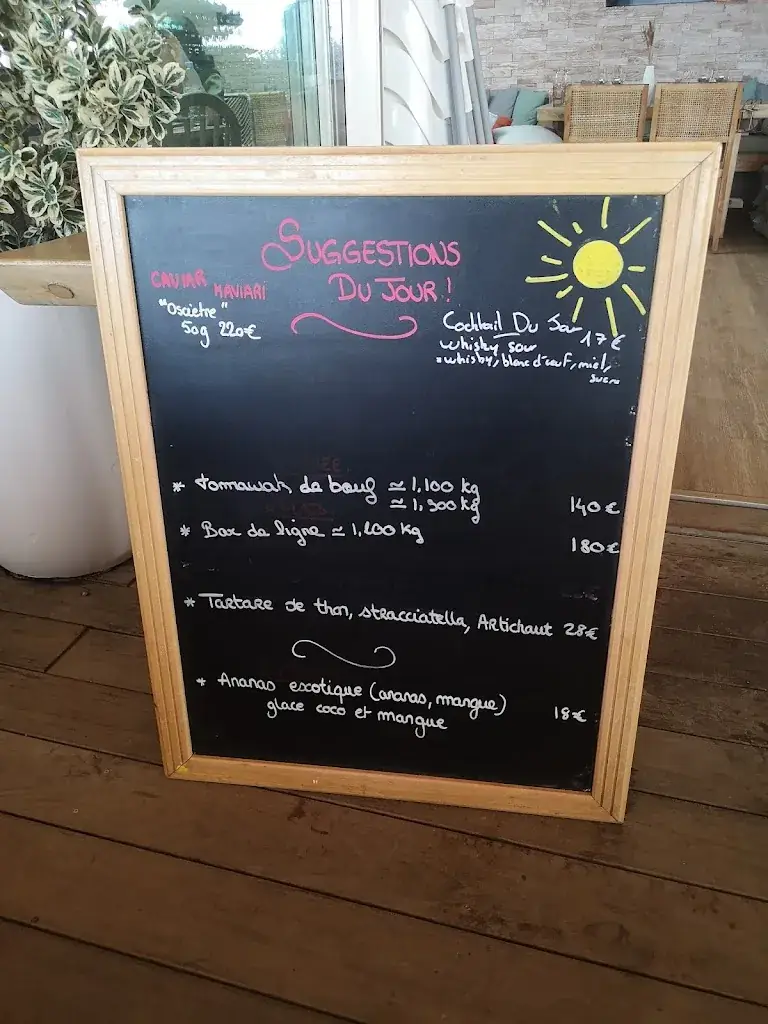 SUGGESTIONS
DU JOUR !
CAVIAR
KAVIARI
"Osciètre"
50g 220€
Cocktail Du Jour
17€
whisky sour
*whisky, blanc d'œuf, miel,
sucre
* tomawak de bœuf ≃ 1,100 kg
≃ 1,300 kg 140€
* Bar de ligne ≃ 1,200 kg
180€
* Tartare de thon, stracciatella, Artichaut 28€
* Ananas exotique (ananas, mangue)
glace coco et mangue 18€